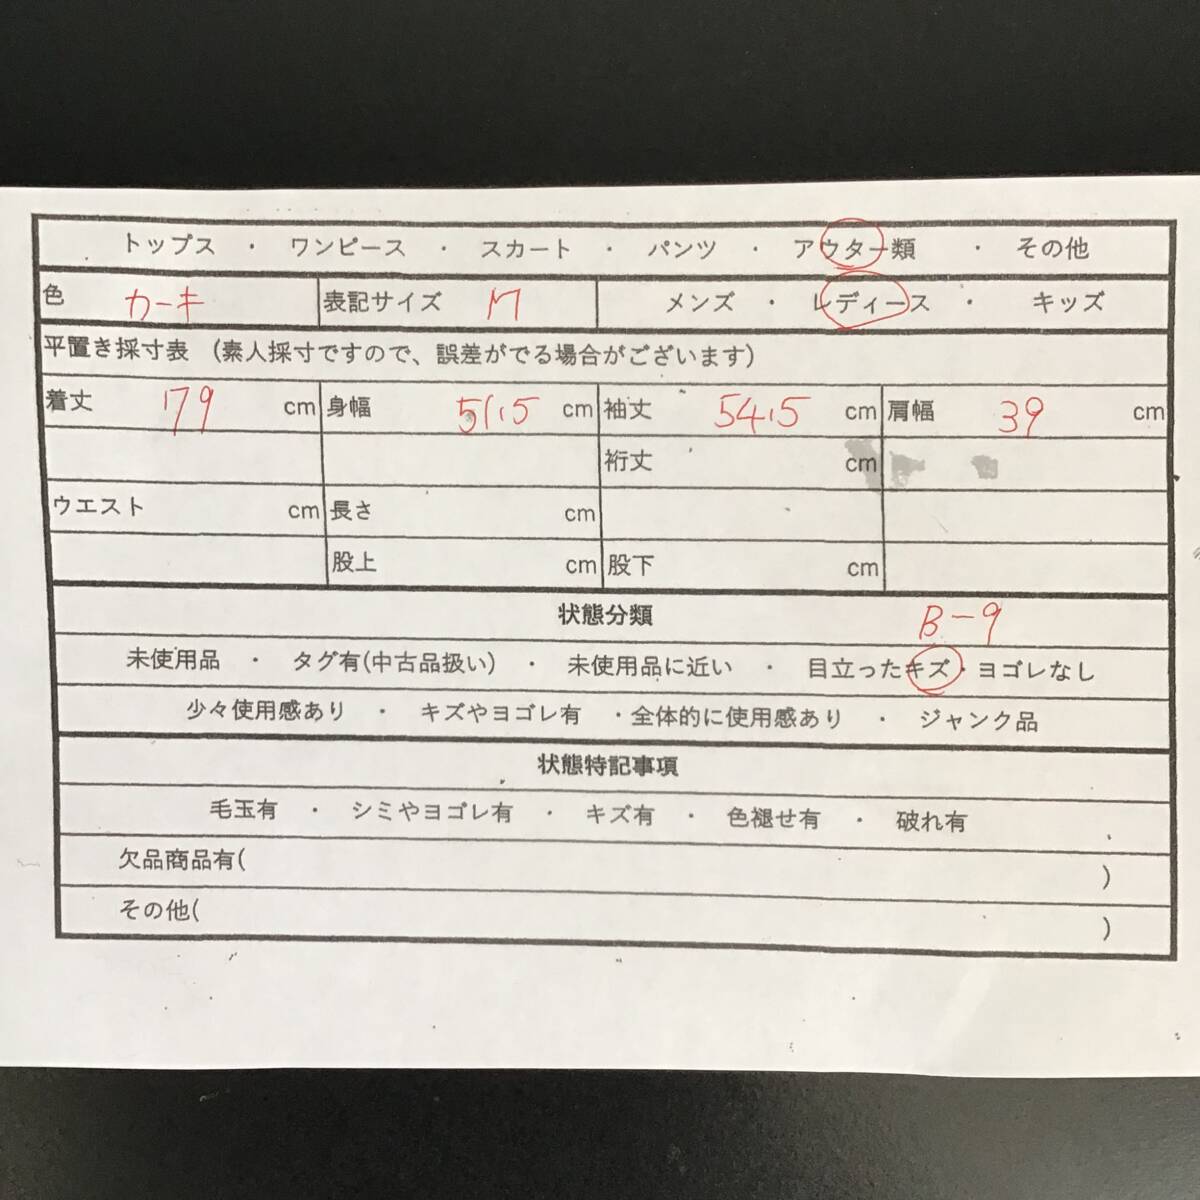 トップス ・ ワンピース ・ スカート ・ パンツ ・ アウター類 ・ その他
色 カーキ 表記サイズ M メンズ ・ レディース ・ キッズ
平置き採寸表 (素人採寸ですので、誤差がでる場合がございます)
着丈 79 cm 身幅 51.5 cm 袖丈 54.5 cm 肩幅 39 cm
裄丈 cm
ウエスト cm 長さ cm
股上 cm 股下 cm
状態分類 B-9
未使用品 ・ タグ有(中古品扱い) ・ 未使用品に近い ・ 目立ったキズ・ヨゴレなし
少々使用感あり ・ キズやヨゴレ有 ・全体的に使用感あり ・ ジャンク品
状態特記事項
毛玉有 ・ シミやヨゴレ有 ・ キズ有 ・ 色褪せ有 ・ 破れ有
欠品商品有( )
その他( )